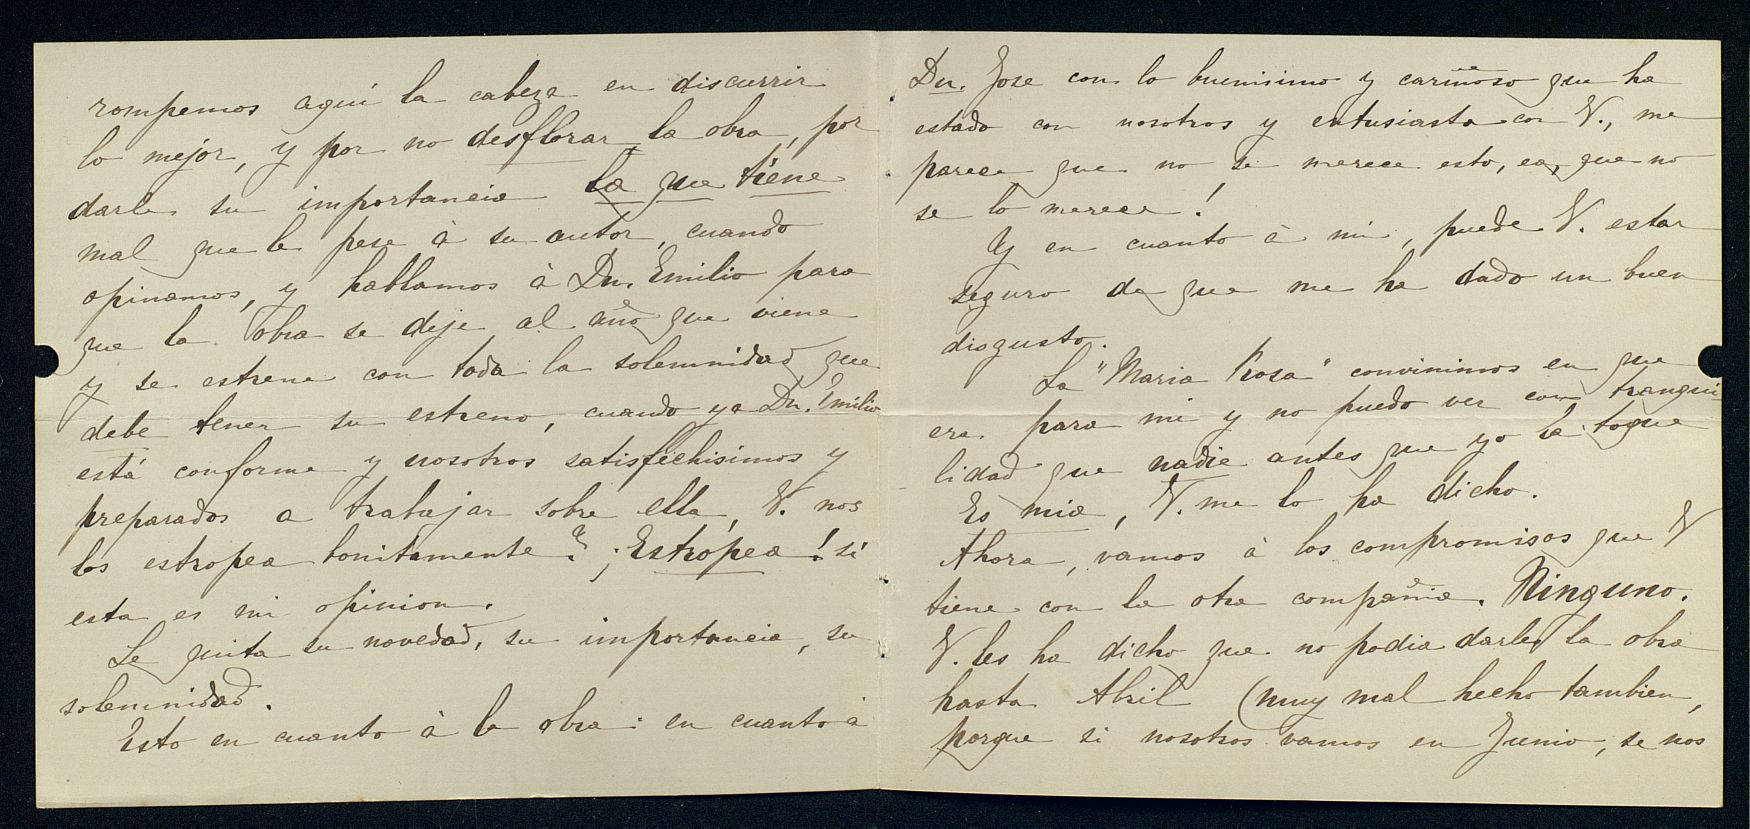 rompemos aquí la cabeza en discurrir
lo mejor, y por no desflorar la obra, por
darle su importancia la que tiene
mal que le pese à su autor, cuando
opinamos, y hablamos à Dn. Emilio para
que la obra se deje al año que viene
y se estrene con toda la solemnidad que
debe tener su estreno, cuando ya Dn. Emilio
está conforme y nosotros satisfechisimos y
preparados a trabajar sobre ella, V. nos
los estropea bonitamente? ¡Estropea! sí
esta es mi opinion.
Le quita su novedad, su importancia, su
solemnidad.
Esto en cuanto à la obra: en cuanto à
Dn. Jose con lo buenisimo y cariñoso que ha
estado con nosotros y entusiasta con V., me
parece que no se merece esto, ea, que no
se lo merece!
Y en cuanto à mi, puede V. estar
seguro de que me ha dado un buen
disgusto.
La "Maria Rosa" convinimos en que
era para mi y no puedo ver con tranqui-
lidad que nadie antes que yo la toque
Es mia, V. me lo ha dicho.
Ahora, vamos à los compromisos que V
tiene con la otra compañia. Ninguno.
V. les ha dicho que no podia darles la obra
hasta Abril (muy mal hecho tambien,
porque si nosotros vamos en Junio, se nos